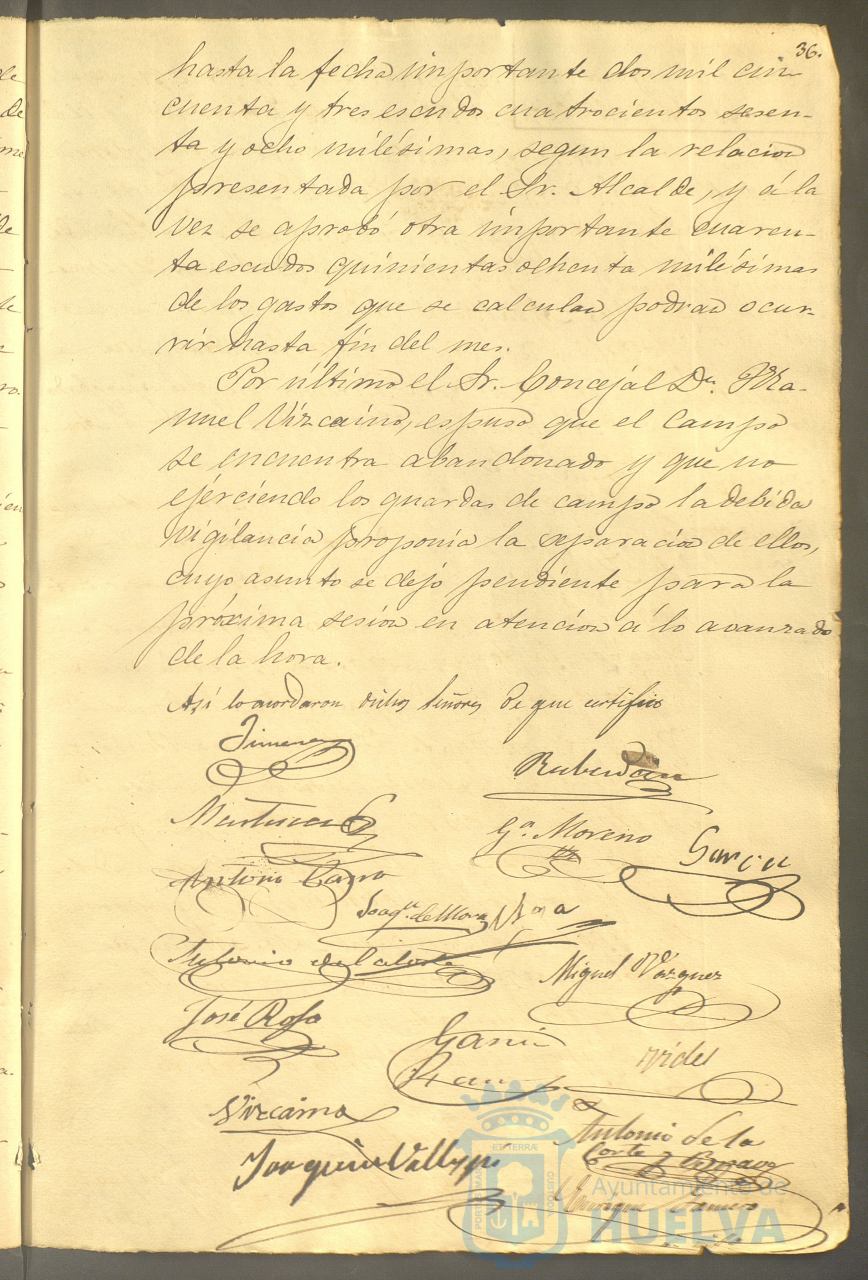 36.
hasta la fecha importante dos mil cin-
cuenta y tres escudos cuatrocientos sesen-
ta y ocho milésimas, segun la relacion
presentada por el Sr. Alcalde, y á la
vez se aprobó otra importante cuaren-
ta escudos quinientas ochenta milésimas
de los gastos que se calculan podran ocur-
rir hasta fin del mes.
Por último el Sr. Concejal Dn. Ma-
nuel Vizcaino, espuso que el campo
se encuentra abandonado y que no
ejerciendo los guardas de campo la debida
vigilancia proponia la separacion de ellos,
cuyo asunto se dejó pendiente para la
próxima sesion en atencion á lo avanzado
de la hora.
Así lo acordaron dichos Señores de que certifico
Jimenez
Martinez
Ga. Moreno
Garcia
Antonio
Joaqn. de Mora
Antonio de la Corte
Miguel Vázquez
José Rofa
Garcia
Vides
Vizcaino
Antonio de la
Corte y
Joaquin
PORTUS MARIS ET TERRÆ CUSTODIA
Ayuntamiento de
HUELVA